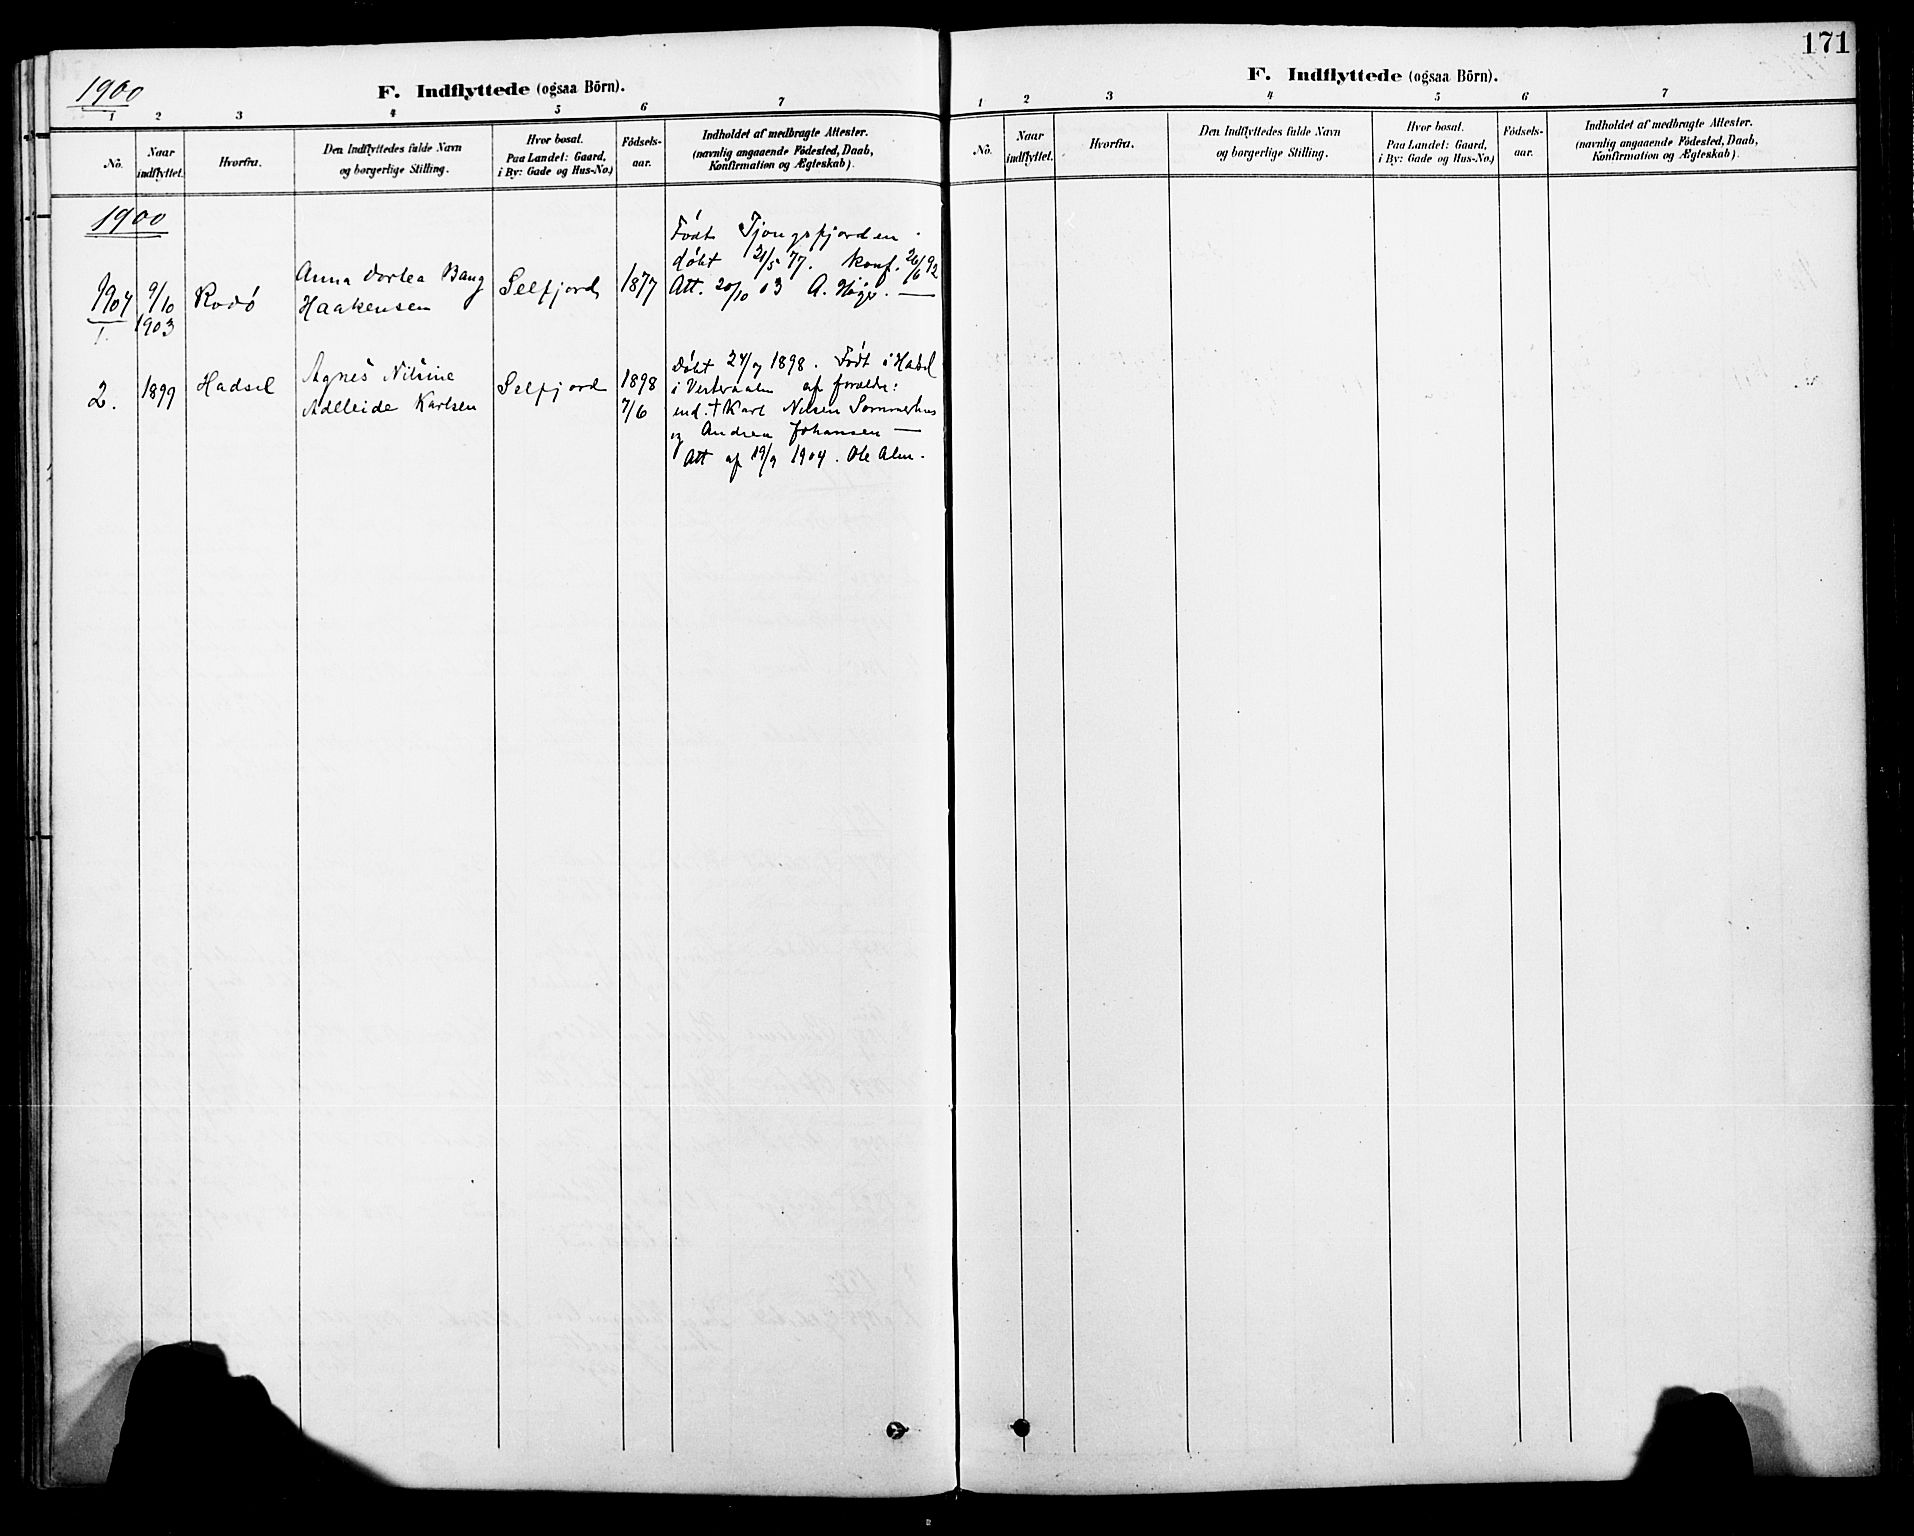 1900
F. Indflyttede (ogsaa Börn).
1 2 3 4 5 6 7
No. Naar indflyttet. Hvorfra. Den Indflyttedes fulde Navn og borgerlige Stilling. Hvor bosat. Paa Landet: Gaard, i By: Gade og Hus-No.) Födsels-aar. Indholdet af medbragte Attester. (navnlig angaaende Födested, Daab, Konfirmation og Ægteskab).
1900
Födt Tjongsfjorden.
1904 9/10 Rodö Anna Dortea Bang Selfjord 1877 döbt 21/5 77. Konf. 26/6 92
1. 1903 Haakensen Att. 20/10 03 A.
2. 1899 Hadsel Agnes Nilsine Selfjord 1898 Döbt 24/7 1898. Födt i Hadsel
Adelleide Karlsen 7/6 i Vesteraalen af foreldre:
ind. † Karl Nilsen Sommerhus
og Andrea Johansen —
Att af 19/9 1904. Ole Alm.
171
F. Indflyttede (ogsaa Börn).
1 2 3 4 5 6 7
No. Naar indflyttet. Hvorfra. Den Indflyttedes fulde Navn og borgerlige Stilling. Hvor bosat. Paa Landet: Gaard, i By: Gade og Hus-No.) Födsels-aar. Indholdet af medbragte Attester. (navnlig angaaende Födested, Daab, Konfirmation og Ægteskab).